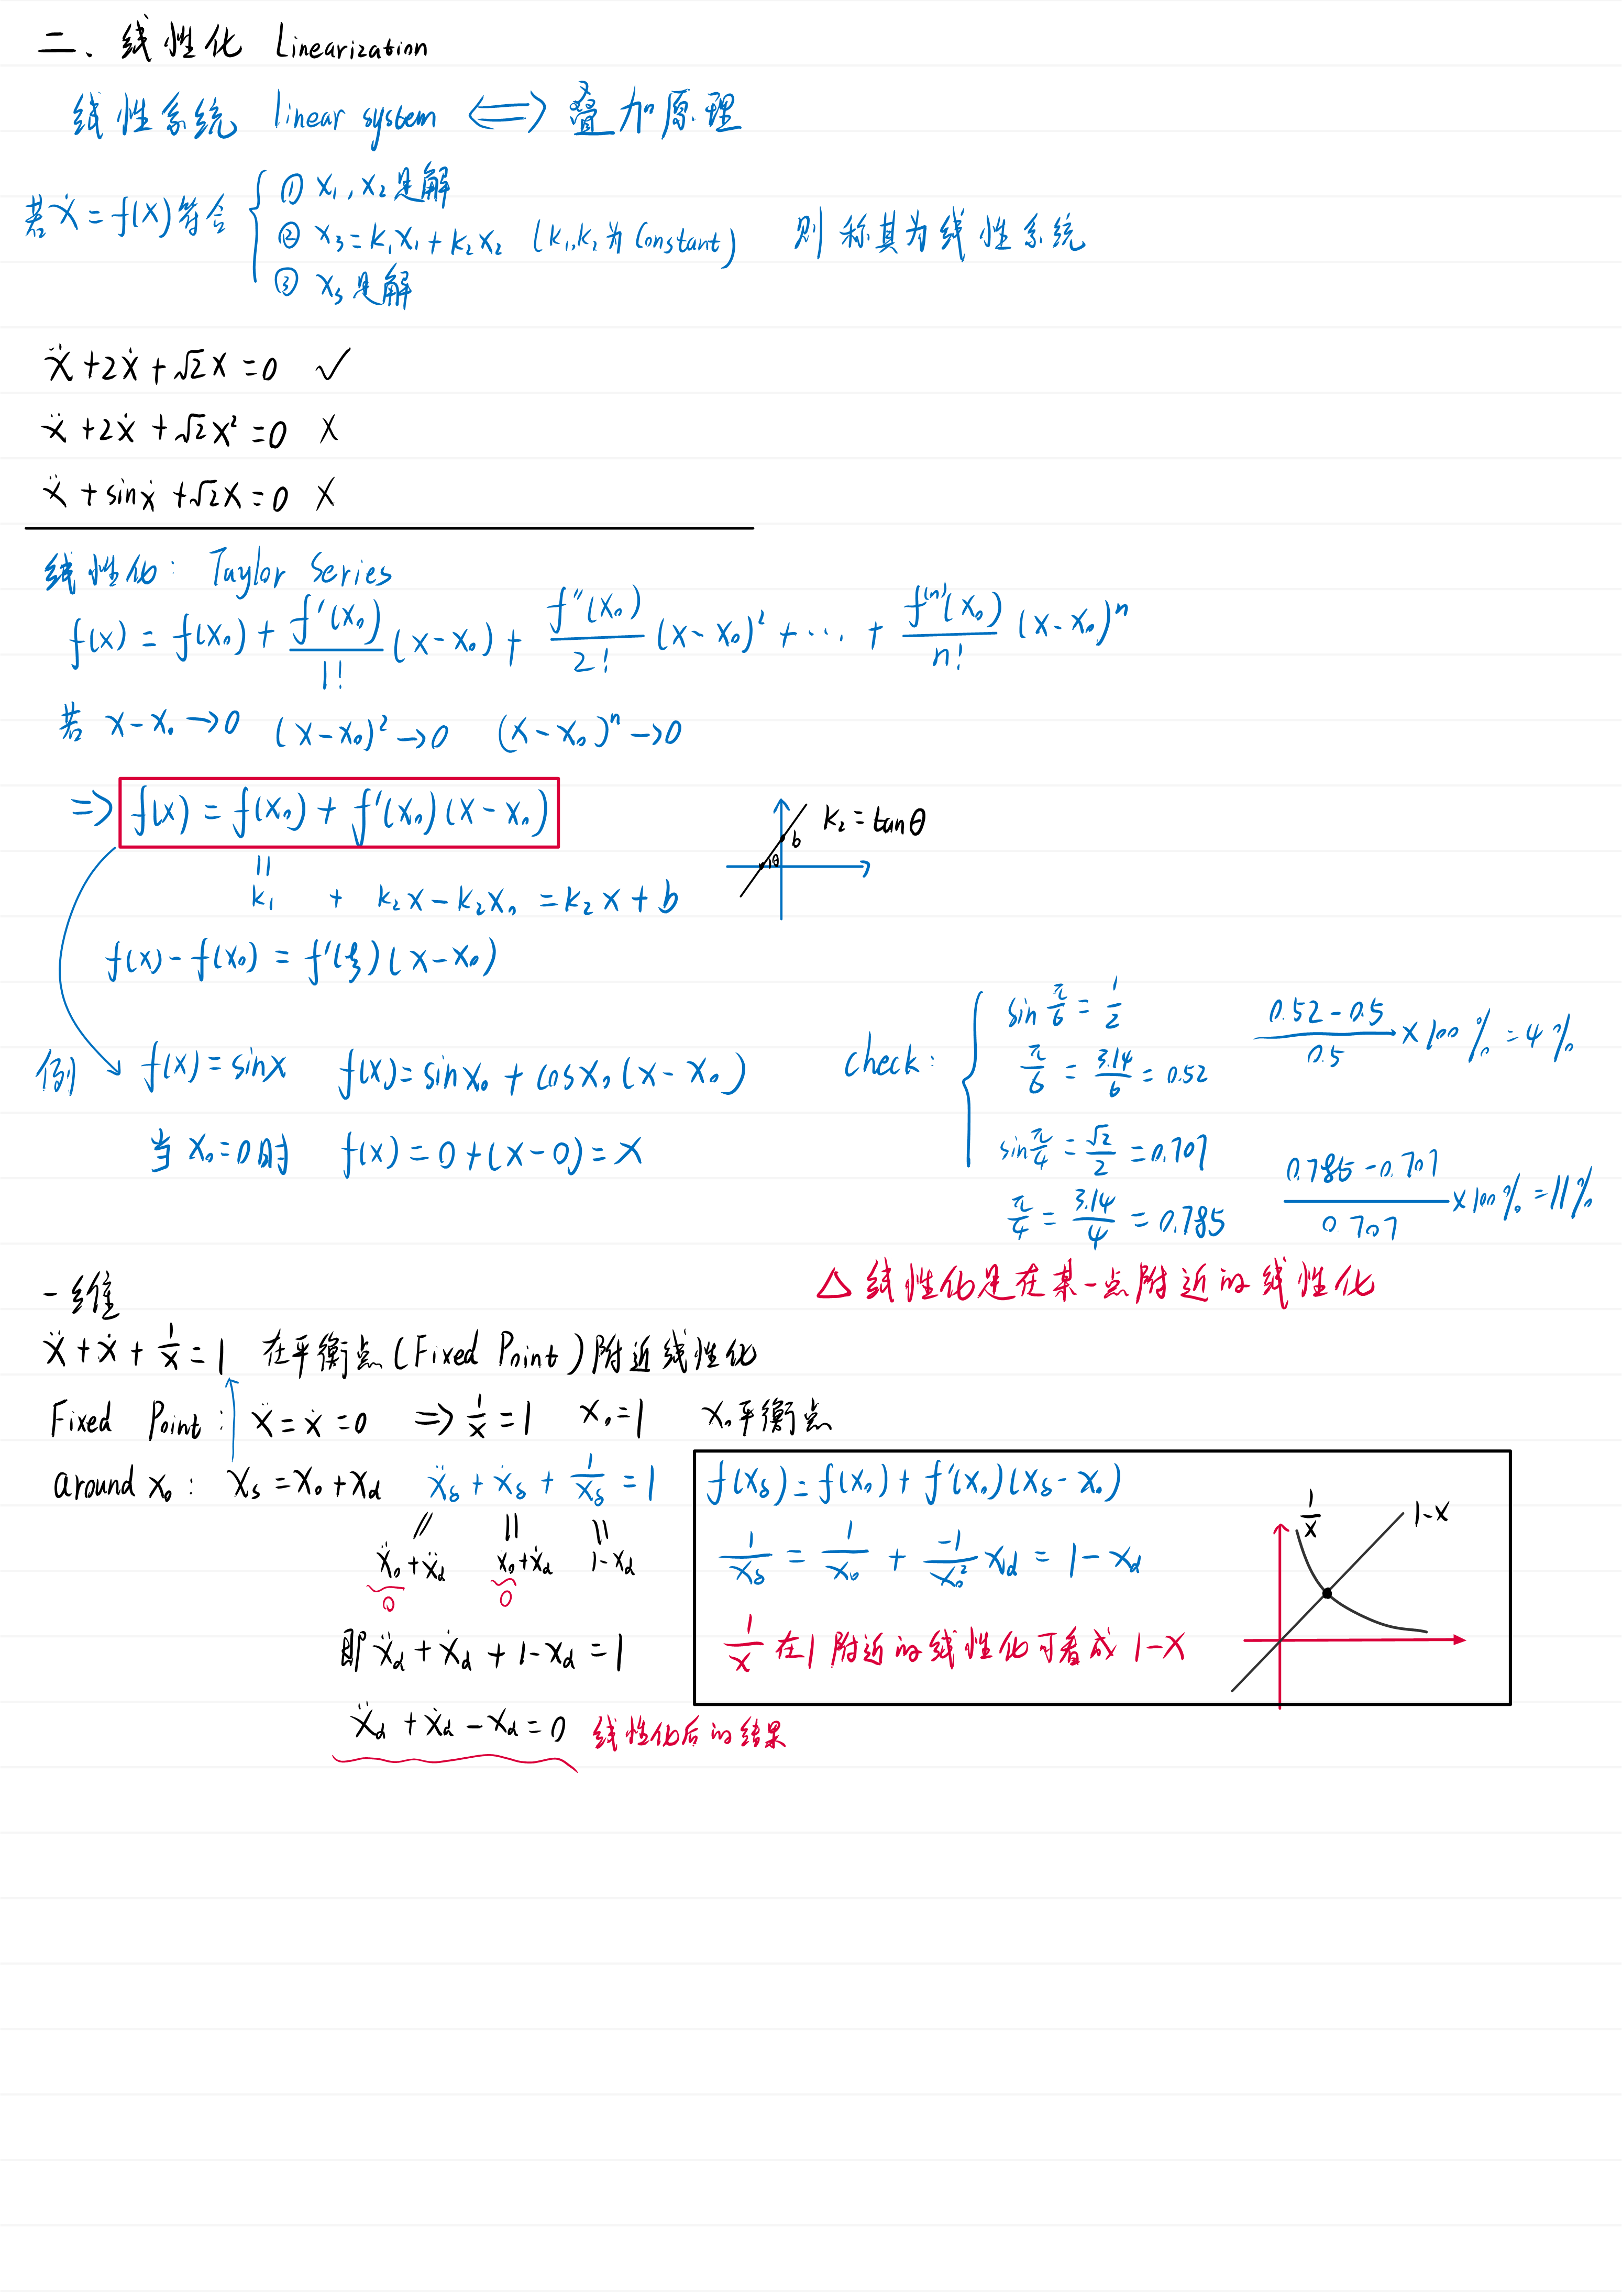 二、线性化 Linearization
线性系统 linear system <=> 叠加原理
若 ẋ = f(x) 符合 { ① x₁, x₂ 是解
② x₃ = k₁x₁ + k₂x₂ (k₁,k₂ 为 Constant) 则称其为线性系统
③ x₃ 是解
ẍ + 2ẋ + √2x = 0 ✓
ẍ + 2ẋ + √2x² = 0 ×
ẍ + sinẋ + √2x = 0 ×
线性化: Taylor Series
f(x) = f(x₀) + f'(x₀)/1! (x - x₀) + f''(x₀)/2! (x - x₀)² + ··· + f⁽ⁿ⁾(x₀)/n! (x - x₀)ⁿ
若 x - x₀ → 0 (x - x₀)² → 0 (x - x₀)ⁿ → 0
=> f(x) = f(x₀) + f'(x₀)(x - x₀)
k₂ = tanθ
b
θ
||
k₁ + k₂x - k₂x₀ = k₂x + b
f(x) - f(x₀) = f'(ξ)(x - x₀)
例 f(x) = sinx f(x) = sinx₀ + cosx₀(x - x₀)
当 x₀ = 0 时 f(x) = 0 + (x - 0) = x
check: { sin π/6 = 1/2
π/6 = 3.14/6 = 0.52 (0.52 - 0.5)/0.5 × 100% = 4%
sin π/4 = √2/2 = 0.707
π/4 = 3.14/4 = 0.785 (0.785 - 0.707)/0.707 × 100% = 11%
△ 线性化是在某一点附近的线性化
一维
ẍ + ẋ + 1/x = 1 在平衡点(Fixed Point)附近线性化
Fixed Point: ẍ = ẋ = 0 => 1/x = 1 x₀ = 1 x₀平衡点
around x₀: xδ = x₀ + xd ẍδ + ẋδ + 1/xδ = 1
|| || ||
ẍ₀ + ẍd ẋ₀ + ẋd 1 - xd
0 0
即 ẍd + ẋd + 1 - xd = 1
ẍd + ẋd - xd = 0 线性化后的结果
f(xδ) = f(x₀) + f'(x₀)(xδ - x₀)
1/xδ = 1/x₀ + -1/x₀² xd = 1 - xd
1/x 在1附近的线性化可看成 1-x
1/x
1-x